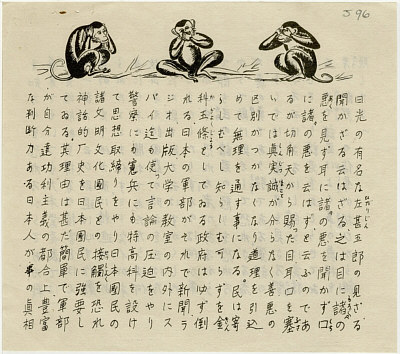 J 96
日光の有名な左甚五郎の見ざる
聞かざる云はざる之は目に諸の
悪を見ず耳に諸の悪を聞かず口
に諸の悪を云はずと云ふのであ
るが切角天から賜った目耳口を塞
いでは真実誠が分らなく善悪の
区別がつかなくなり道理を引込
め無理を通す事になる。民は寄
らしむべし知らしむ可らずを金
科玉條としてゐる政府は必ず倒
れる日本の軍部がそれで新聞ラ
ジオ出版大学の教室の内外にス
パイ迄も使って言論の圧迫をやり
警察にも憲兵にも特高科を設け
て思想取締りをやり日本國民の
諸文明文化國民との接觸を恐れ
神話的厂史を日本國民に強要し
てゐる。其理由は甚だ簡單で軍部
が自分達功利主義の都合上豊富
な判断力ある日本人が事の真相